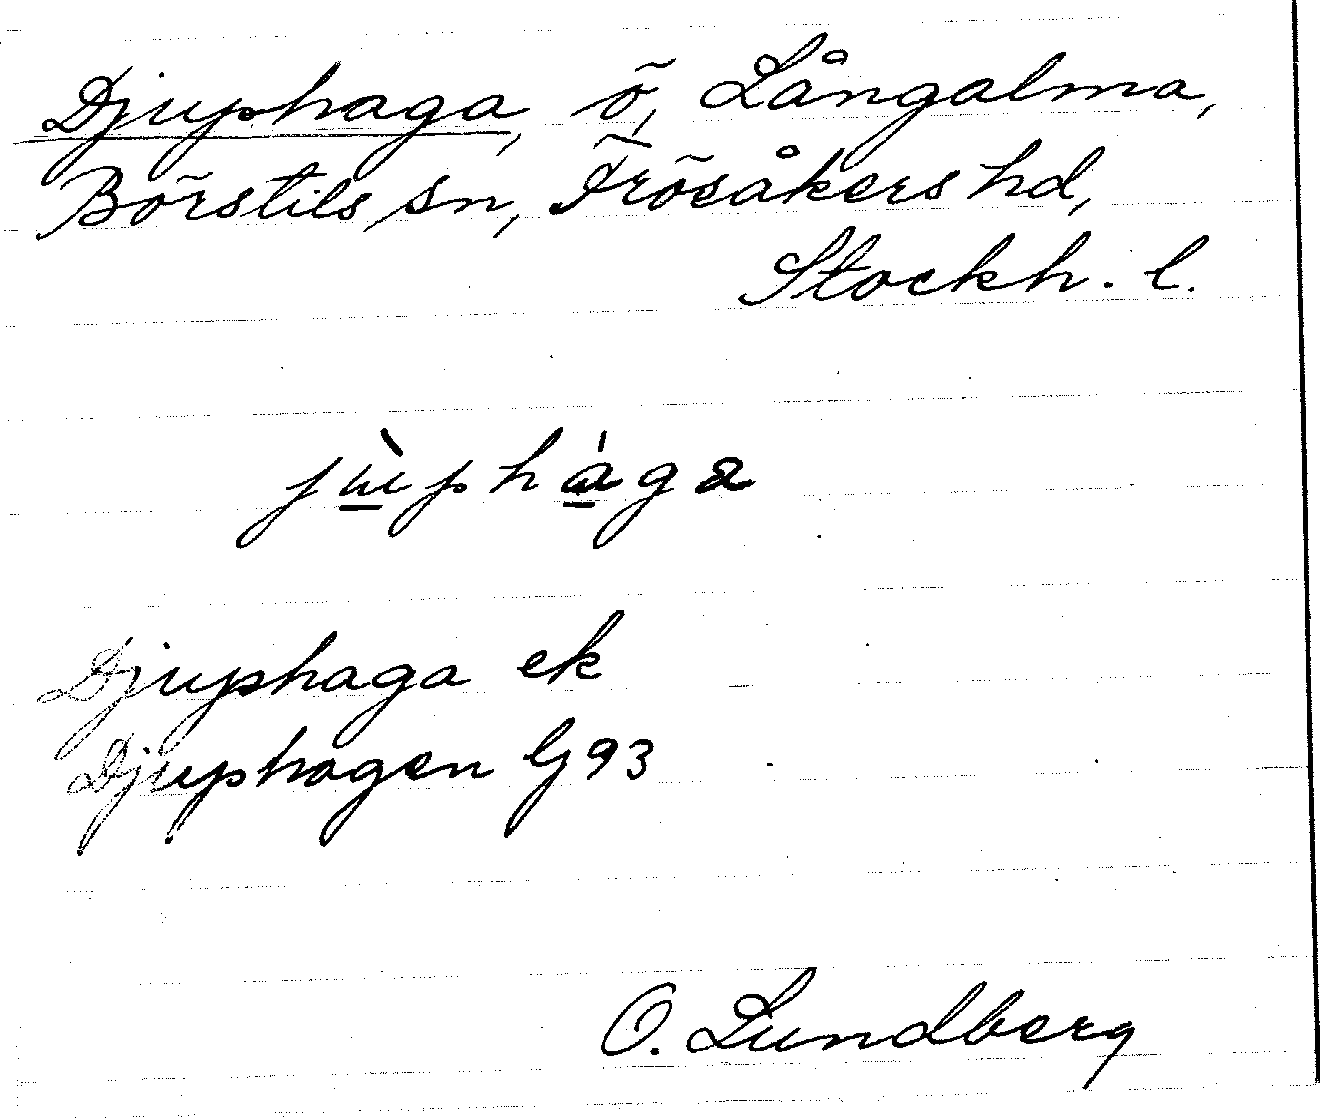 Djuphaga, ö, Långalma,
Börstils sn, Frösåkers hd,
Stockh. l.
jùphága
Djuphaga ek
Djuphagen G93
O. Lundberg